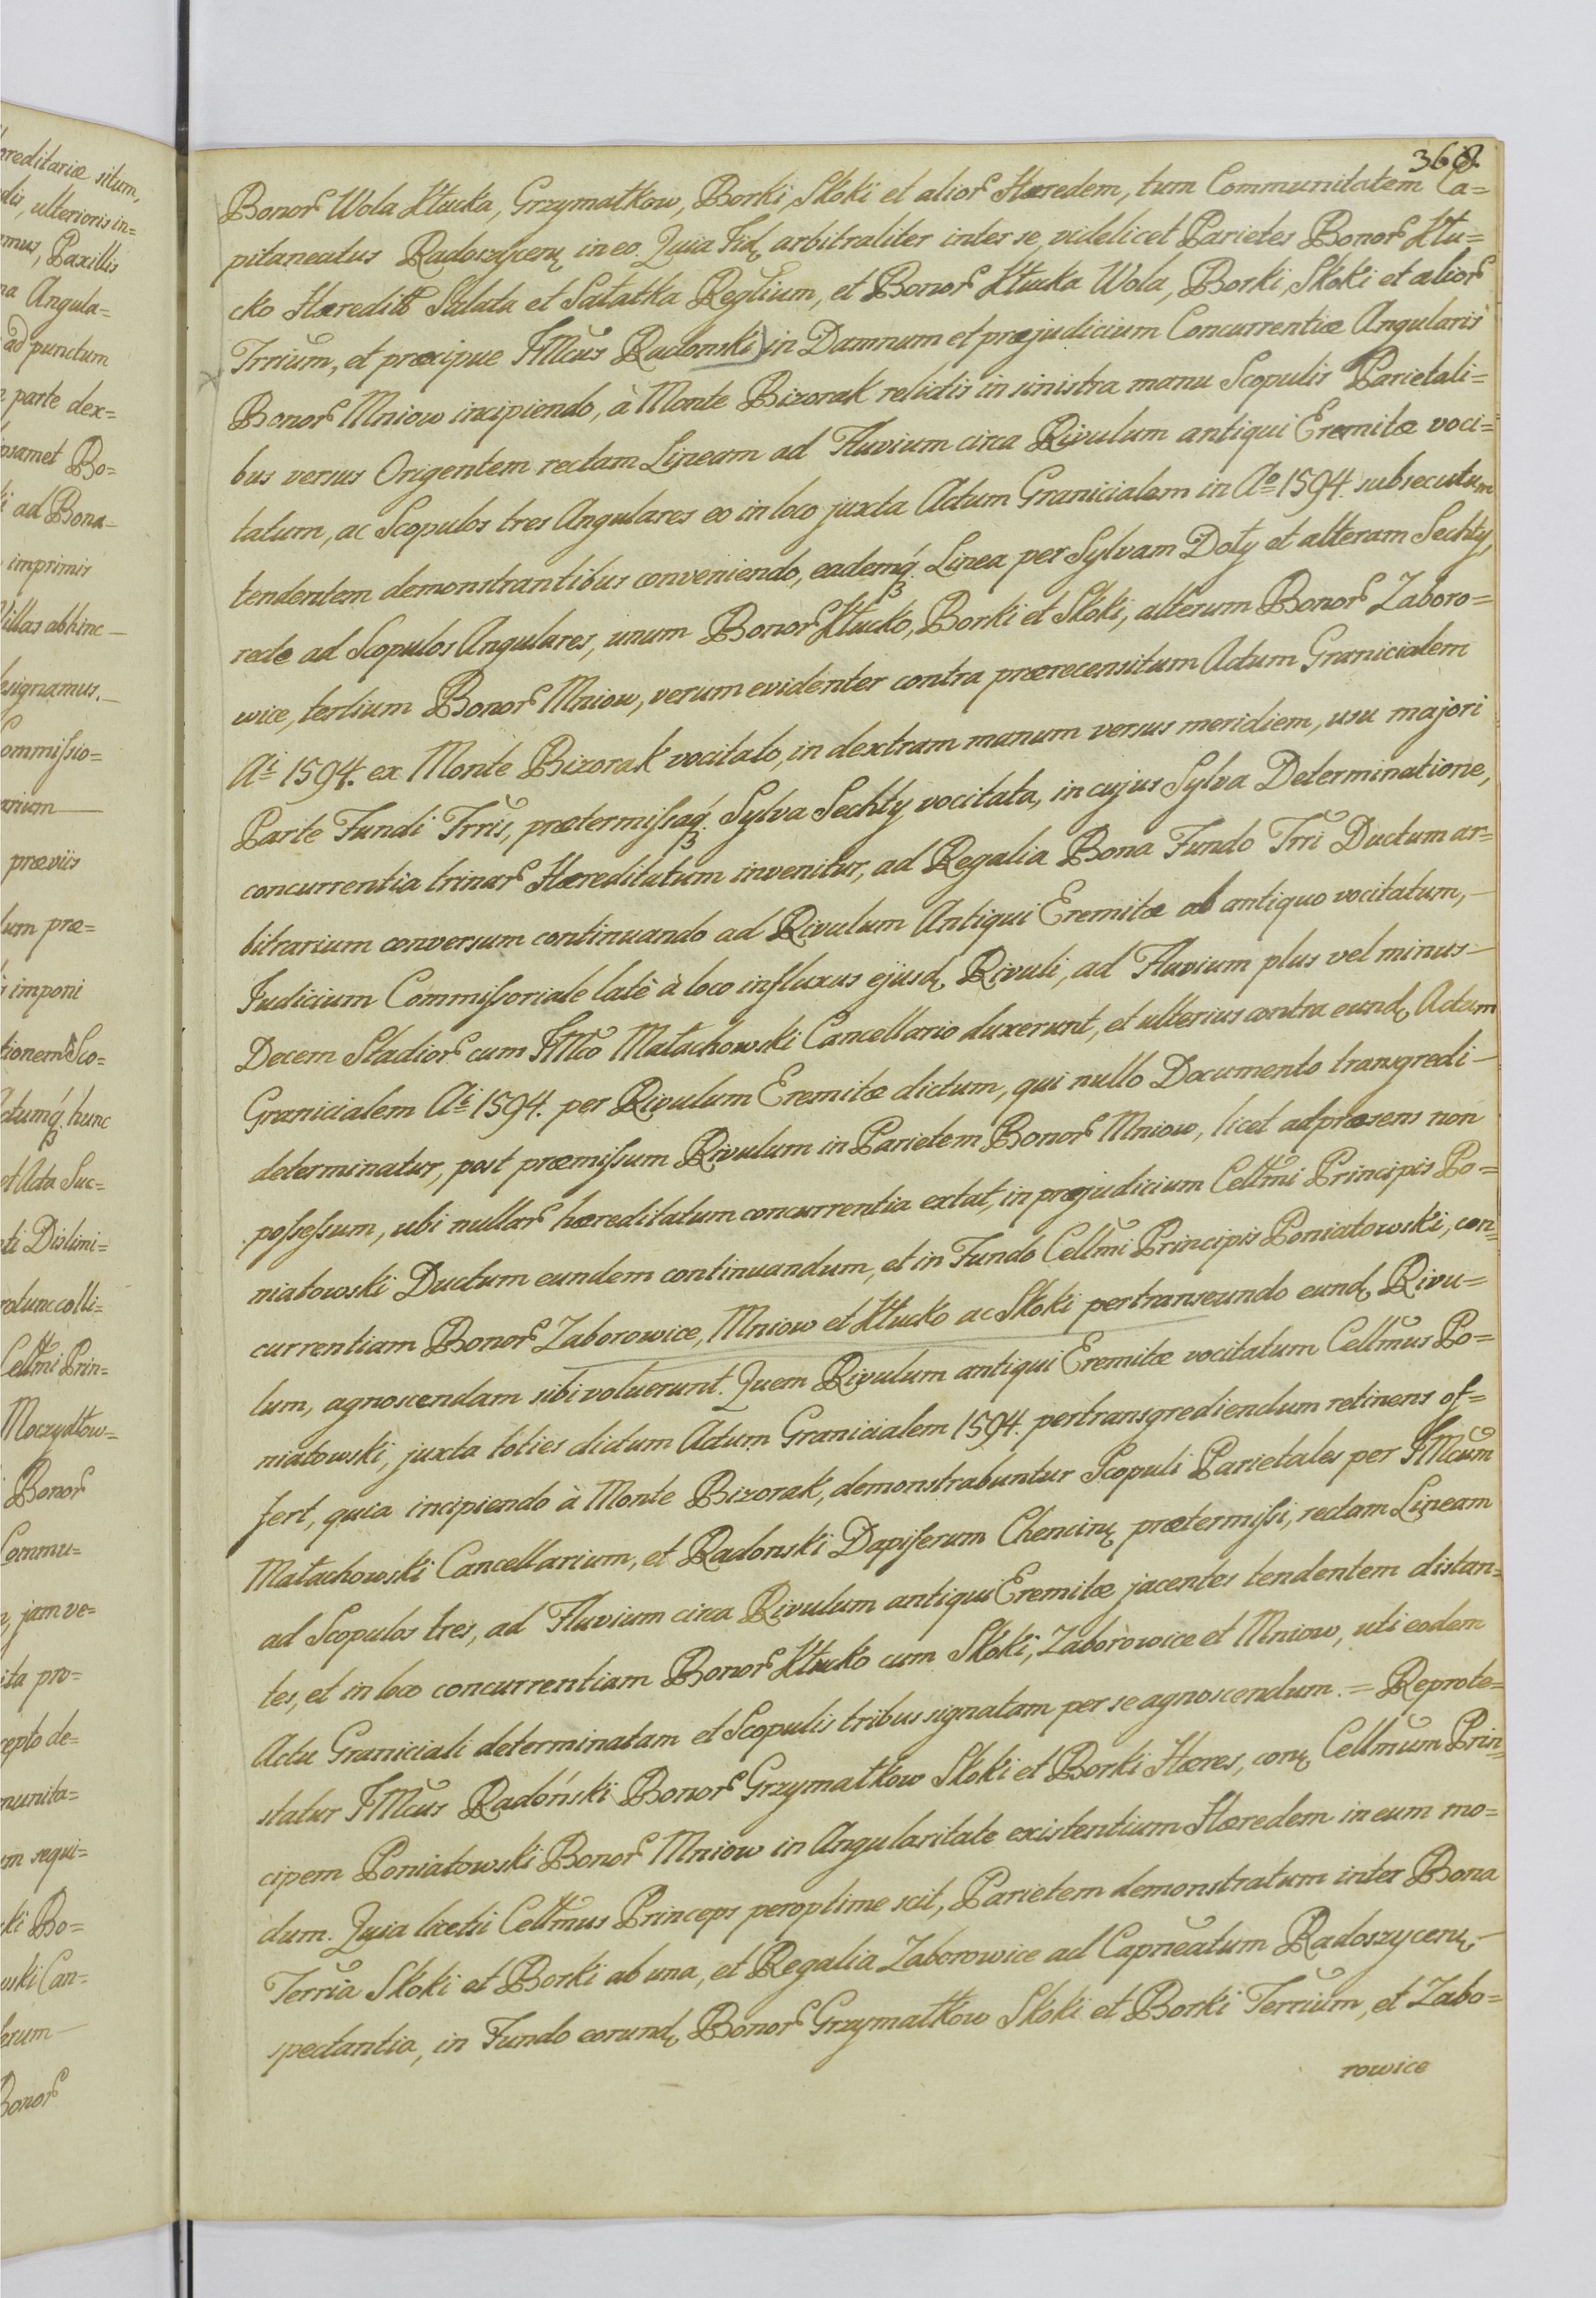 368.
Bonor Wola Kłucka, Grzymałkow, Borki, Skoki et alior Hæredem, tum Communitatem Ca=
pitaneatus Radoszycen, in eo. Quia Iid, arbitraliter inter se, videlicet Parietes Bonor Kłu=
cko Hæredit Sałata et Sałatka Reglium, et Bonor Kłucka Wola, Borki, Skoki et alior
Trrium, et præcipue IMcus Radonski) in Damnum et præjudicium Concurrentiæ Angularis
Bonor Mniow incipiendo, à Monte Bizorak relictis in sinistra manu Scopulis Parietali=
bus versus Origentem rectam Lineam ad Fluvium circa Rivulum antiqui Eremitæ voci=
tatum, ac Scopulos tres Angulares eo in loco juxta Actum Granicialem in Ao 1594. subsecutum
tendentem demonstrantibus conveniendo, eademq. Linea per Sylvam Doły et alteram Sechty,
recte ad Scopulos Angulares, unum Bonor Kłucko, Borki et Skoki, alterum Bonor Zaboro=
wice, tertium Bonor Mniow, verum evidenter contra prærecensitum Actum Granicialem
Ai 1594. ex Monte Bizorak vocitato, in dextram manum versus meridiem, usu majori
Parte Fundi Trris, prætermissaq. Sylva Sechty vocitata, in cujus Sylva Determinatione,
concurrentia trinar Hæreditatum invenitur, ad Regalia Bona Fundo Trri Ductum ar=
bitrarium conversum continuando ad Rivulum Antiqui Eremitæ ab antiquo vocitatum,
Iudicium Commissoriale latè à loco influxus ejusd, Rivuli, ad Fluvium plus vel minus
Decem Stadior cum IMco Małachowski Cancellario duxerunt, et ulterius contra eund, Actum
Granicialem Ai 1594. per Rivulum Eremitæ dictum, qui nullo Documento transgredi
determinatur, post præmissum Rivulum in Parietem Bonor Mniow, licet ad præsens non
possessum, ubi nullar hæreditatum concurrentia extat, in præjudicium Cellmi Principis Po=
niatowski Ductum eundem continuandum, et in Fundo Cellmi Principis Poniatowski, con=
currentiam Bonor Zaborowice, Mniow et Kłucko ac Skoki pertranseundo eund, Rivu=
lum, agnoscendam sibi voluerunt. Quem Rivulum antiqui Eremitæ vocitatum Cellmus Po=
niatowski, juxta toties dictum Actum Granicialem 1594. pertransgrediendum retinens of=
fert, quia incipiendo à Monte Bizorak, demonstrabuntur Scopuli Parietales per IMcum
Małachowski Cancellarium, et Radonski Dapiferum Chencin, prætermissi, rectam Lineam
ad Scopulos tres, ad Fluvium circa Rivulum antiqui Eremitæ jacentes tendentem distan=
tes, et in loco concurrentiam Bonor Kłucko cum Skoki, Zaborowice et Mniow, uti eodem
Actu Graniciali determinatam et Scopulis tribus signatam per se agnoscendum. = Reprote=
statur IMcus Radoński Bonor Grzymałkow Skoki et Borki Hæres, con, Cellmum Prin=
cipem Poniatowski Bonor Mniow in Angularitate existentium Hæredem in eum mo=
dum. Quia licetsi Cellmus Princeps peroptime scit, Parietem demonstratum inter Bona
Terria Skoki et Borki ab una, et Regalia Zaborowice ad Capneatum Radoszycen,
spectantia, in Fundo eorund, Bonor Grzymałkow Skoki et Borki Terrium, et Zabo=
rowice